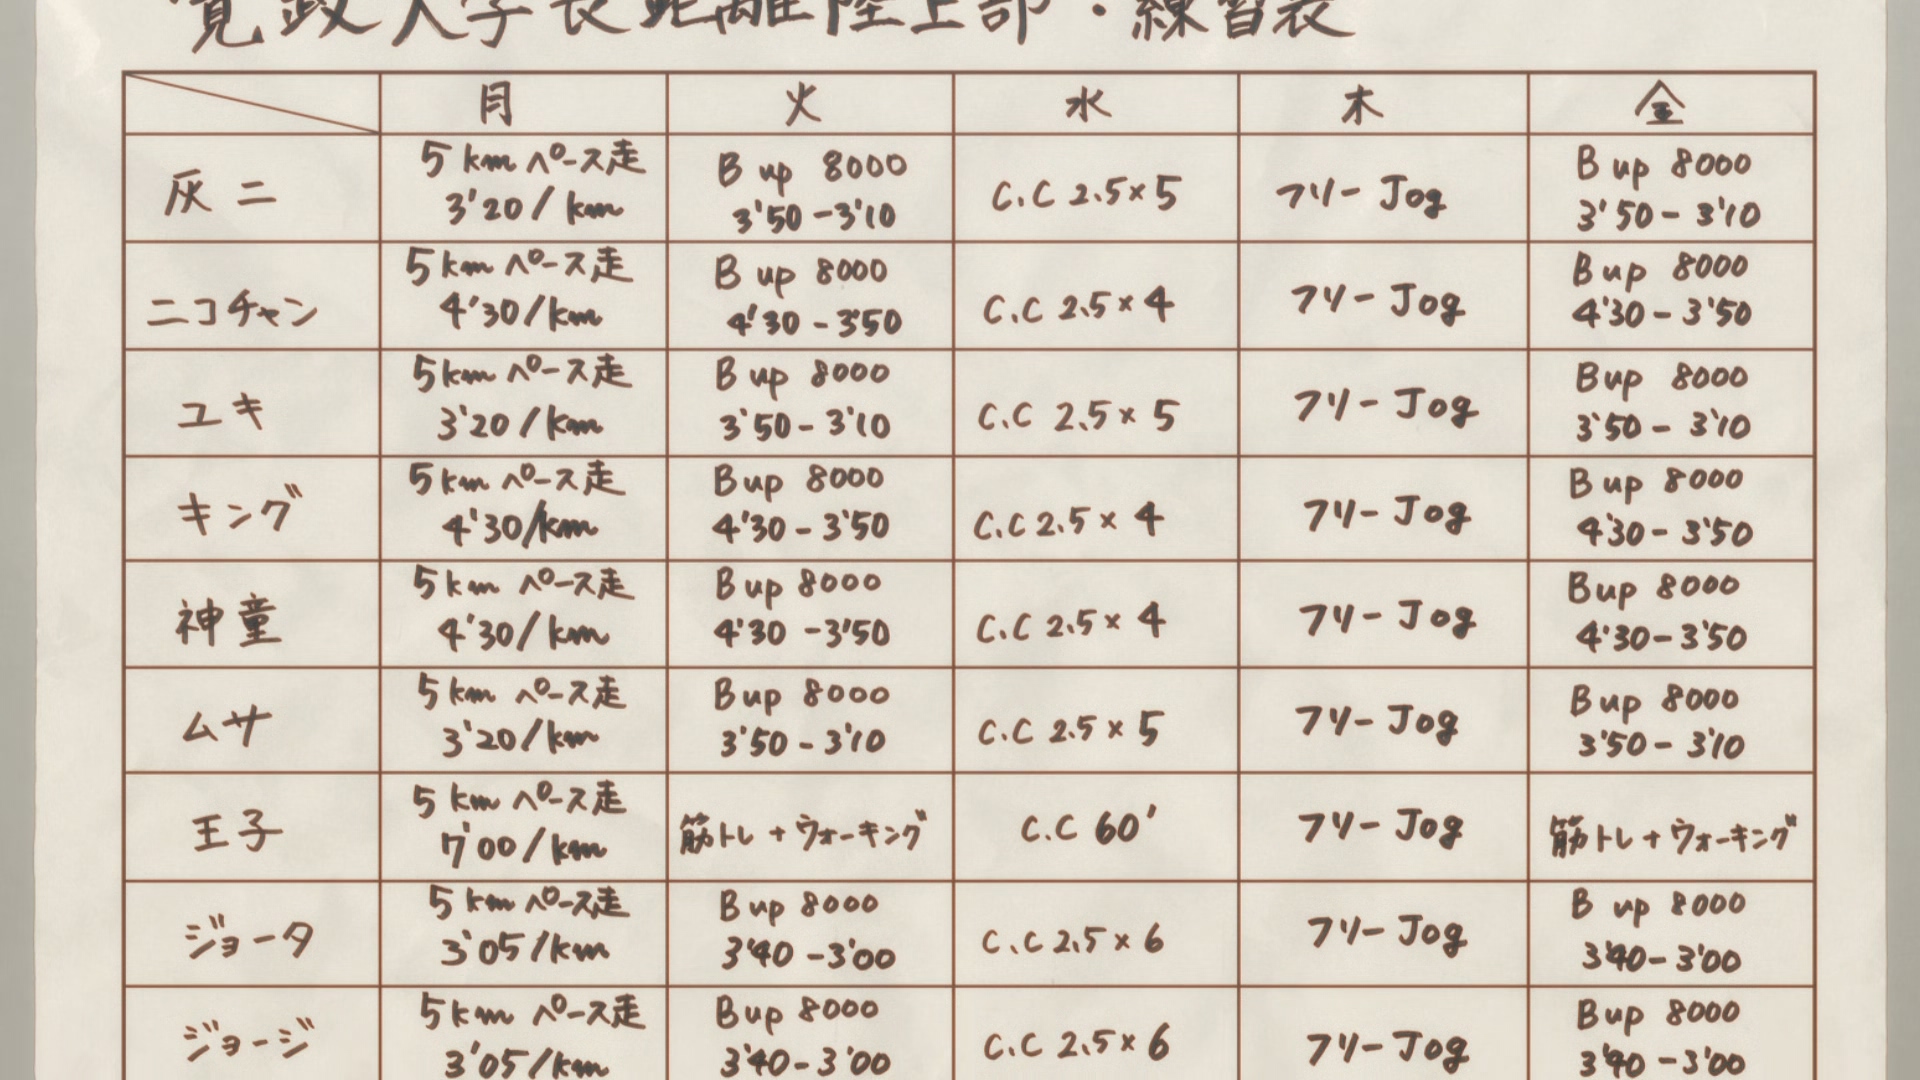 寛政大学長距離陸上部・練習表
月 火 水 木 金
灰二 5km ペース走 3'20/km B up 8000 3'50-3'10 C.C 2.5×5 フリー Jog B up 8000 3'50-3'10
ニコチャン 5km ペース走 4'30/km B up 8000 4'30-3'50 C.C 2.5×4 フリー Jog B up 8000 4'30-3'50
ユキ 5km ペース走 3'20/km B up 8000 3'50-3'10 C.C 2.5×5 フリー Jog B up 8000 3'50-3'10
キング 5km ペース走 4'30/km B up 8000 4'30-3'50 C.C 2.5×4 フリー Jog B up 8000 4'30-3'50
神童 5km ペース走 4'30/km B up 8000 4'30-3'50 C.C 2.5×4 フリー Jog B up 8000 4'30-3'50
ムサ 5km ペース走 3'20/km B up 8000 3'50-3'10 C.C 2.5×5 フリー Jog B up 8000 3'50-3'10
王子 5km ペース走 7'00/km 筋トレ+ウォーキング C.C 60' フリー Jog 筋トレ+ウォーキング
ジョータ 5km ペース走 3'05/km B up 8000 3'40-3'00 C.C 2.5×6 フリー Jog B up 8000 3'40-3'00
ジョージ 5km ペース走 3'05/km B up 8000 3'40-3'00 C.C 2.5×6 フリー Jog B up 8000 3'40-3'00